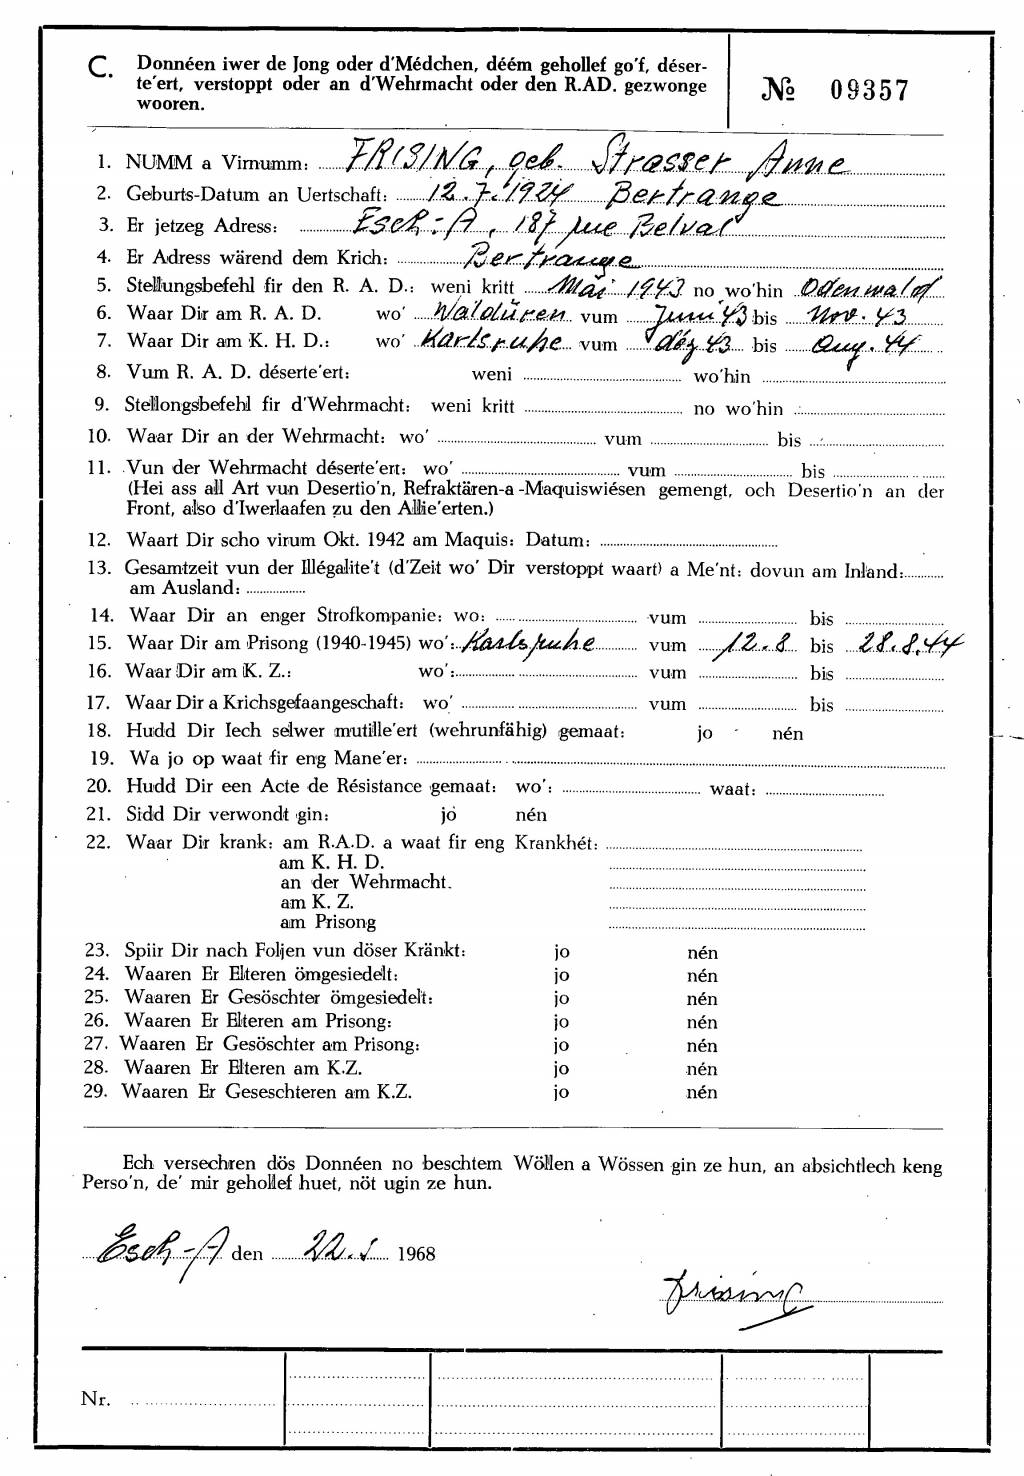 C. Donnéen iwer de Jong oder d'Médchen, déém gehollef go'f, déser-
te'ert, verstoppt oder an d'Wehrmacht oder den R.AD. gezwonge
wooren.
№ 09357
1. NUMM a Virnumm: FRISING, geb. Strasser Anne
2. Geburts-Datum an Uertschaft: 12.7.1924 Bertrange
3. Er jetzeg Adress: Esch-A, 187 rue Belval
4. Er Adress wärend dem Krich: Bertrange
5. Stellungsbefehl fir den R. A. D.: weni kritt Mai 1943 no wo'hin Odenwald
6. Waar Dir am R. A. D. wo' Waldüren vum Juni 43 bis Nov. 43
7. Waar Dir am K. H. D.: wo' Karlsruhe vum déz 43 bis Aug. 44
8. Vum R. A. D. déserte'ert: weni wo'hin
9. Stellongsbefehl fir d'Wehrmacht: weni kritt no wo'hin
10. Waar Dir an der Wehrmacht: wo' vum bis
11. Vun der Wehrmacht déserte'ert: wo' vum bis
(Hei ass all Art vun Desertio'n, Refraktären-a-Maquiswiésen gemengt, och Desertio'n an der
Front, also d'Iwerlaafen zu den Allie'erten.)
12. Waart Dir scho virum Okt. 1942 am Maquis: Datum:
13. Gesamtzeit vun der Illégalite't (d'Zeit wo' Dir verstoppt waart) a Me'nt: dovun am Inland:
am Ausland:
14. Waar Dir an enger Strofkompanie: wo: vum bis
15. Waar Dir am Prisong (1940-1945) wo': Karlsruhe vum 12.8 bis 28.8.44
16. Waar Dir am K. Z.: wo': vum bis
17. Waar Dir a Krichsgefaangeschaft: wo' vum bis
18. Hudd Dir Iech selwer mutille'ert (wehrunfähig) gemaat: jo nén
19. Wa jo op waat fir eng Mane'er:
20. Hudd Dir een Acte de Résistance gemaat: wo': waat:
21. Sidd Dir verwondt gin: jo nén
22. Waar Dir krank: am R.A.D. a waat fir eng Krankhét:
am K. H. D.
an der Wehrmacht.
am K. Z.
am Prisong
23. Spiir Dir nach Foljen vun döser Kränkt: jo nén
24. Waaren Er Elteren ömgesiedelt: jo nén
25. Waaren Er Gesöschter ömgesiedelt: jo nén
26. Waaren Er Elteren am Prisong: jo nén
27. Waaren Er Gesöschter am Prisong: jo nén
28. Waaren Er Elteren am K.Z. jo nén
29. Waaren Er Geseschteren am K.Z. jo nén
Ech versechren dös Donnéen no beschtem Wöllen a Wössen gin ze hun, an absichtlech keng
Perso'n, de' mir gehollef huet, nöt ugin ze hun.
Esch-A den 22.I 1968
Frising
Nr.